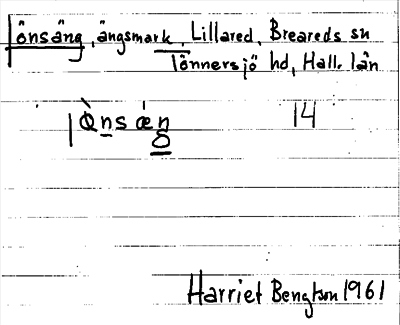 Jönsäng, ängsmark, Lillared, Breareds sn
Tönnersjö hd, Hall. län
14
Harriet Bengtson 1961